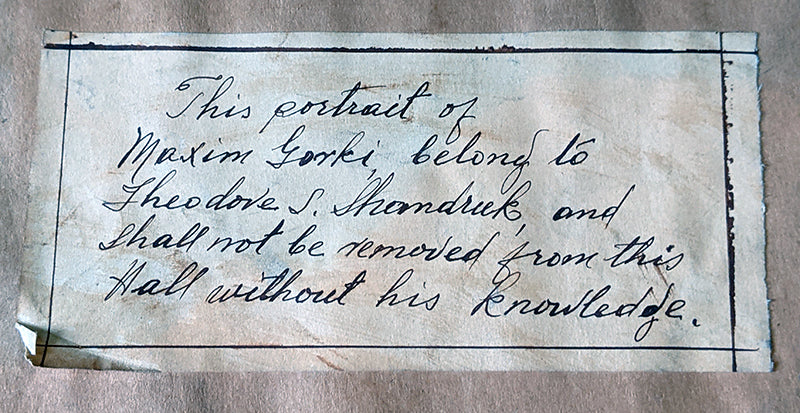 This portrait of
Maxim Gorki, belong to
Theodore S. Shandruk, and
shall not be removed from this
Hall without his knowledge.